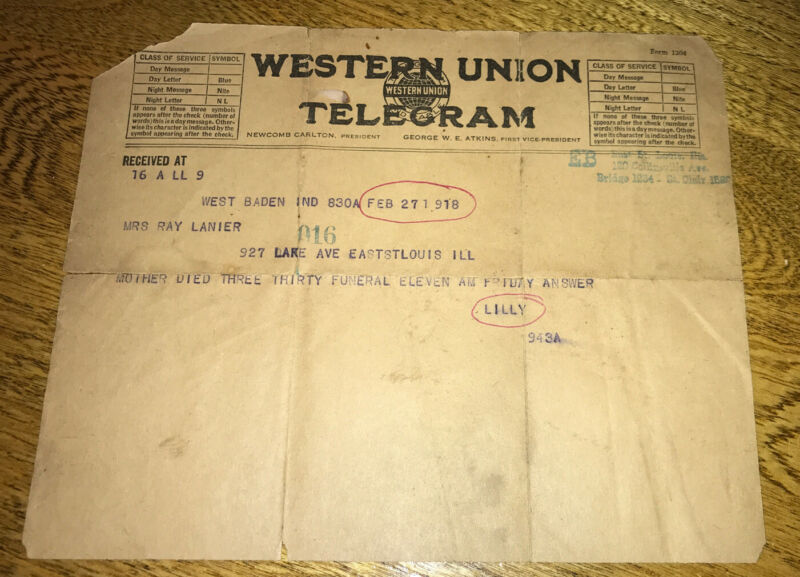 Form 1204
CLASS OF SERVICE SYMBOL
Day Message
Day Letter Blue
Night Message Nite
Night Letter N L
If none of these three symbols
appears after the check (number of
words) this is a day message. Other-
wise its character is indicated by the
symbol appearing after the check.
WESTERN UNION
WESTERN UNION
TELEGRAM
NEWCOMB CARLTON, PRESIDENT GEORGE W. E. ATKINS, FIRST VICE-PRESIDENT
CLASS OF SERVICE SYMBOL
Day Message
Day Letter Blue
Night Message Nite
Night Letter N L
If none of these three symbols
appears after the check (number of
words) this is a day message. Other-
wise its character is indicated by the
symbol appearing after the check.
RECEIVED AT
EB East St. Louis, Ills.
120 Collinsville Ave.
Bridge 1234 - St. Clair
16 A LL 9
WEST BADEN IND 830A FEB 27 1918
MRS RAY LANIER
916
927 LAKE AVE EASTSTLOUIS ILL
MOTHER DIED THREE THIRTY FUNERAL ELEVEN AM FRIDAY ANSWER
LILLY
943A